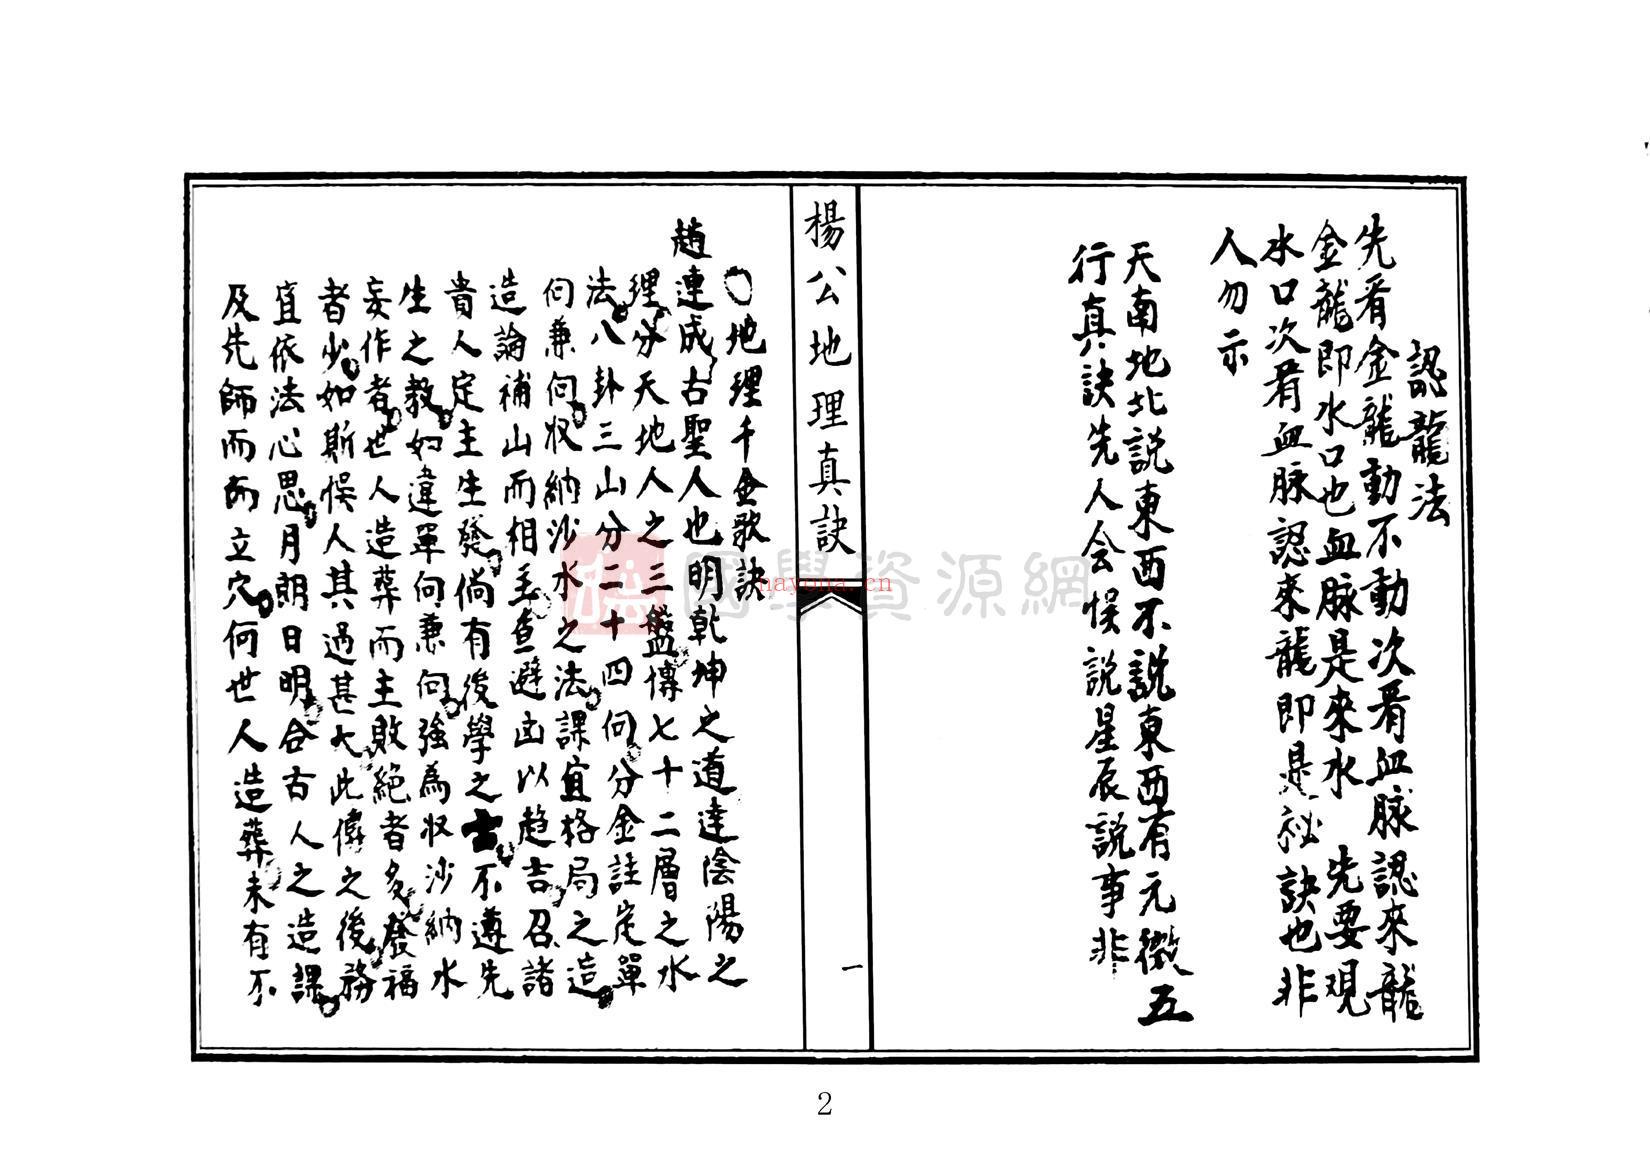 認龍法
先看金龍動不動次看血脉認來龍
金龍即水口也血脉是來水 先要观
水口次看血脉認來龍即是秘訣也非
人勿示
天南地北説東西不説東西有元微五
行真訣先人会悮説星辰說事非
楊公地理真訣
一
〇地理千金歌訣
趙連成古聖人也明乾坤之道達陰陽之
理分天地人之三盤傳七十二層之水
法八卦三山分二十四向分金註定單
向兼向収納沙水之法課宜格局之造
造論補山而相主查避凶以趋吉召諸
貴人定主生發倘有後學之士不遵先
生之教如違單向兼向強為収沙納水
妄作者世人造葬而主敗絕者多發福
者少如斯悮人其過甚大此傳之後務
宜依法心思月朗日明合古人之造課
及先師而立穴何世人造葬未有不
國學資源網
nayona.cn
2